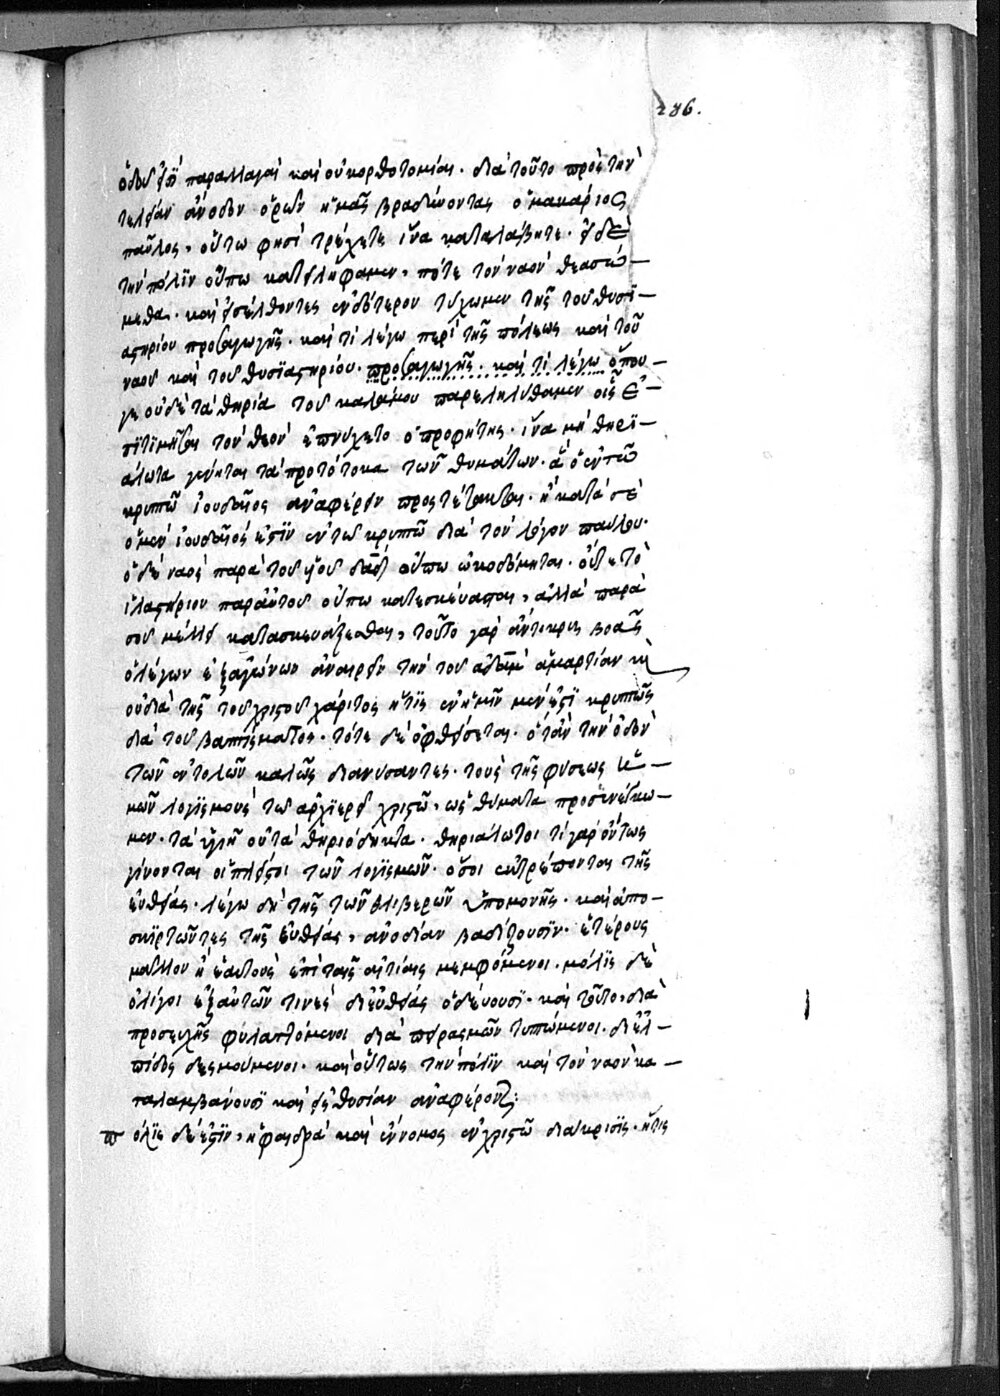 286.
ὁδοῦ εἰσὶ παραλλαγαὶ καὶ οὐκ ὀρθοτομίαι. διὰ τοῦτο πρὸς τὴν
τελείαν ἄνοδον ὁρῶν ἡμᾶς βραδύνοντας ὁ μακάριος
παῦλος, οὕτω φησὶ τρέχετε ἵνα καταλάβητε. εἰ δὲ
τὴν πόλιν οὔπω κατειλήφαμεν, πότε τὸν ναὸν θεασό–
μεθα. καὶ εἰσελθόντες ἐνδότερον τύχωμεν τῆς τοῦ θυσι–
αστηρίου προσαγωγῆς. καὶ τί λέγω περὶ τῆς πόλεως καὶ τοῦ
ναοῦ καὶ τοῦ θυσιαστηρίου. προσαγωγῆς. καὶ τί λέγω ὅπου–
γε οὐδὲ τὰ θηρία τοῦ καλάμου παρεληλύθαμεν οἷς ἐ–
πιτιμῆσαι τὸν θεὸν ἐπηύχετο ὁ προφήτης. ἵνα μὴ θηρι–
άλωτα γένηται τὰ πρωτότοκα τῶν θυμάτων. ἃ ὁ ἐν τῶ
κρυπτῶ ἰουδαῖος ἀναφέρειν προστέτακται. ἢ κατὰ σὲ
ὁ μὲν ἰουδαῖός ἐστιν ἐν τῶ κρυπτῶ διὰ τὸν λόγον παύλου.
ὁ δὲ ναὸς παρὰ τοῦ υἱοῦ δαδ οὔπω ὠκοδόμηται. οὔτε τὸ
ἱλαστήριον παρ αὐτοῦ οὔπω κατεσκεύασται, ἀλλὰ παρὰ
σοῦ μέλλει κατασκευάζεσθαι, τοῦτο γὰρ ἄντικρις βοᾶς
ὁ λέγων ἐξ ἀγώνων ἀναιρεῖν τὴν τοῦ ἀδὰμ ἁμαρτίαν καὶ
οὐ διὰ τῆς τοῦ χριστοῦ χάριτος ἥτις ἐν ἡμῖν μέν ἐστι κρυπτῶς
διὰ τοῦ βαπτίσματος. τότε δὲ ὀφθήσεται. ὅταν τὴν ὁδὸν
τῶν ἐντολῶν καλῶς διανύσαντες. τοὺς τῆς φύσεως ἡ–
μῶν λογισμοὺς τῶ ἀρχιερεῖ χριστῶ, ὡς θύματα προσενέγκω–
μεν. τὰ ὑγιῆ οὐ τὰ θηριόδηκτα. θηριάλωτοι τὶ γὰρ ὄντως
γίνονται οἱ πλείστοι τῶν λογισμῶν. ὅσοι ἐκτρέπονται τῆς
εὐθείας. λέγω δὴ τῆς τῶν θλιβερῶν ὑπομονῆς. καὶ ἀπο–
σκιρτῶντες τῆς εὐθείας, ἀνοδίαν βαδίζουσιν. ἑτέρους
μᾶλλον ἢ ἑαυτοὺς ἐπὶ ταῖς αἰτίαις μεμφόμενοι. μόλις δὲ
ὀλίγοι ἐξ αὐτῶν τινὲς δι εὐθείας ὁδεύουσι. καὶ τοῦτο, διὰ
προσευχῆς φυλαττόμενοι διὰ πειρασμῶν τυπτόμενοι. δι ἐλ–
πίδος δεσμούμενοι. καὶ οὕτως τὴν πόλιν καὶ τὸν ναὸν κα–
ταλαμβάνουσι καὶ εἰς θυσίαν ἀναφέρονται:
πόλις δέ ἐστιν, ἡ φαιδρὰ καὶ ἔννομος ἐν χριστῶ διάκρισις. ἥτις